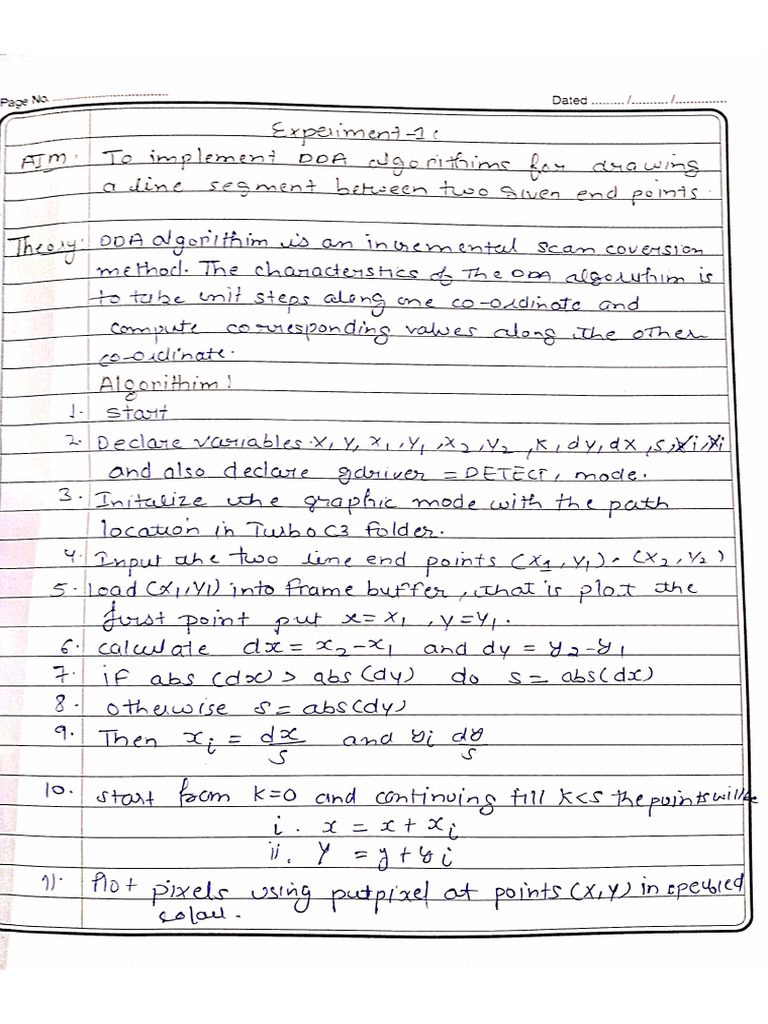 Page No. ............................ Dated ........./........../.............
Experiment-1:
AIM: To implement DDA algorithims for drawing
a line segment between two given end points.
Theory: DDA algorithim is an incremental scan coversion
method. The characterstics of the DDA algorithim is
to take unit steps along one co-ordinate and
compute corresponding values along the other
co-ordinate.
Algorithim!
1. Start
2. Declare variables x, y, x₁, y₁, x₂, y₂, k, dy, dx, s, xi, yi
and also declare gdriver = DETECT, mode.
3. Initalize the graphic mode with the path
location in Turbo C3 folder.
4. Input the two line end points (x₁, y₁) - (x₂, y₂)
5. load (x₁, y1) into frame buffer, that is plot the
first point put x = x₁, y = y₁.
6. calculate dx = x₂-x₁ and dy = y₂-y₁
7. if abs (dx) > abs (dy) do s = abs(dx)
8. otherwise s = abs(dy)
9. Then xi = dx/s and yi dy/s
10. start from k=0 and continuing till k<s the points will be
i. x = x + xi
ii. y = y + yi
11. Plot pixels using putpixel at points (x, y) in specified
colour.